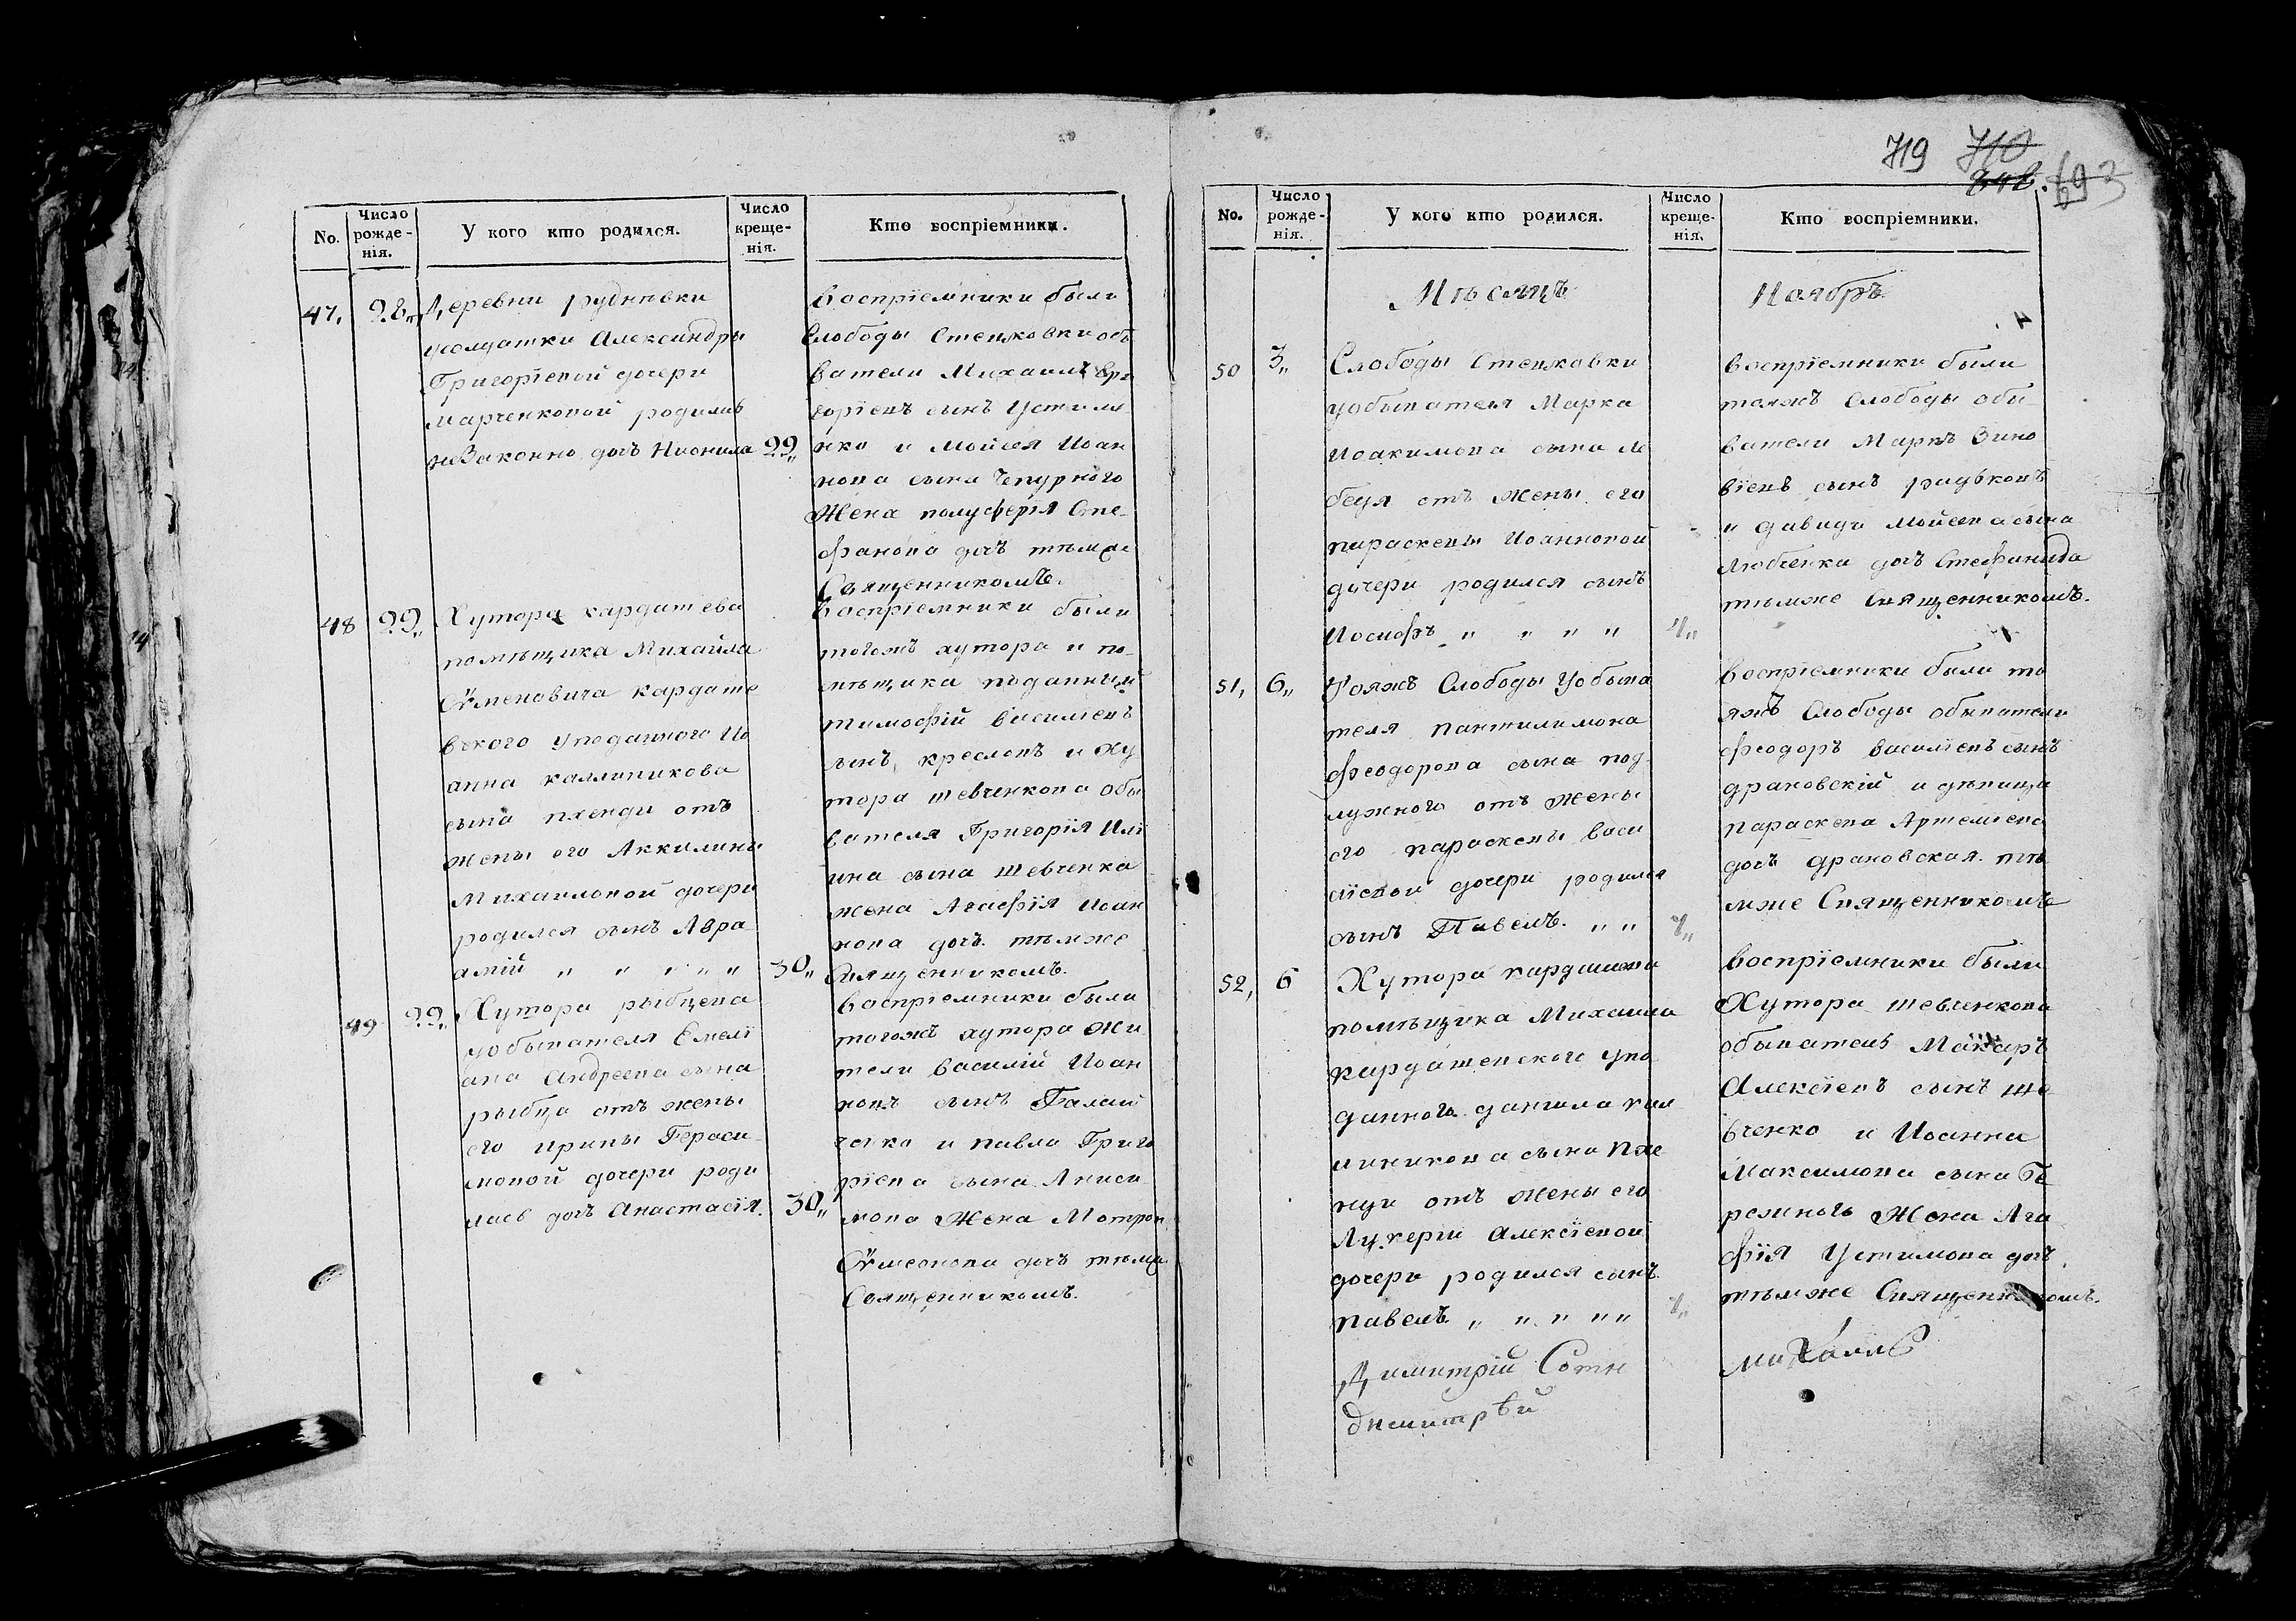 No.
Число рожденія.
У кого кто родился.
Число крещенія.
Кто воспріемники.
47. 28.
Деревни рудневки
усолдатки Александры
Григоріевой дочери
марченковой родилась
незаконно дочь Неонила 29
воспріемники были
Слободы Степковки обы
ватели Михаилъ Гри
горіевъ сынъ Устиме
нко и Мойсея Иоан
нова сына Чепурного
Жена полуферія Сте
фанова дочъ тѣмже
Священникомъ.
48 29
Хутора кардашева
помѣщика Михайла
Сѵменовича кардаше
вского уподанного Ио
анна каллиникова
сына пхенди отъ
жены его Аккилины
Михаиловой дочери
родился сынъ Авра
амій " " " " " 30
воспріемники были
тогожъ хутора и по
мѣщика поданный
тимофій василіевъ
сынъ креслевъ и ху
тора шевченкова обы
вателя Григорія Илі
ина сына шевченка
жена Агафія Иоан
нова дочъ тѣмже
Священникомъ.
49 29
Хутора рыбцева
уобывателя Емелі
ана Андреева сына
рыбца отъ жены
его ирины Гераси
мовой дочери роди
лась дочъ Анастасія. 30
воспріемники были
тогожъ хутора жи
тели василій Иоан
новъ сынъ
и павла Григо
ріева сына Аниси
мова Жена Матрон
Сѵмеонова дочъ тѣмже
Священникомъ.
719 710 693
No.
Число рожденія.
У кого кто родился.
Число крещенія.
Кто воспріемники.
Мѣсяцъ Ноябръ
50 3
Слободы Степковки
уобывателя Марка
Иоакимова сына ле
бедя отъ жены его
параскевы Иоанновой
дочери родился сынъ
Иосифъ " " " " 4
воспріемники были
тояжъ слободы обы
ватели Маркъ Зино
віевъ сынъ радьковъ
и давида мойсеева сына
любченка дочъ Стефанида
тѣмже Священникомъ.
51, 6
Тояжъ Слободы уобыва
теля пантилимона
феодорова сына под
лужного отъ жены
его параскевы васи
ліевой дочери родился
сынъ Павелъ. " "
воспріемники были то
яжъ Слободы обыватели
феодоръ василіевъ сынъ
драновскій и дѣвица
параскева Артемиева
дочъ драновская тѣ
мже Священникомъ
52, 6
Хутора кардашева
помѣщика Михаила
кардашевского упо
данного даниила кал
линикова сына пхе
нди отъ жены его
Лукерии Алексіевой
дочери родился сынъ
павелъ. " " " " "
воспріемники были
Хутора шевченкова
обыватель Макаръ
Алексіевъ сынъ ше
вченко и Иоанна
Максимова сына Бе
режного Жена Ага
фія Устимова дочъ
тѣмже Священникомъ.
Димитрій Сотн
михаилъ
димитрѣй